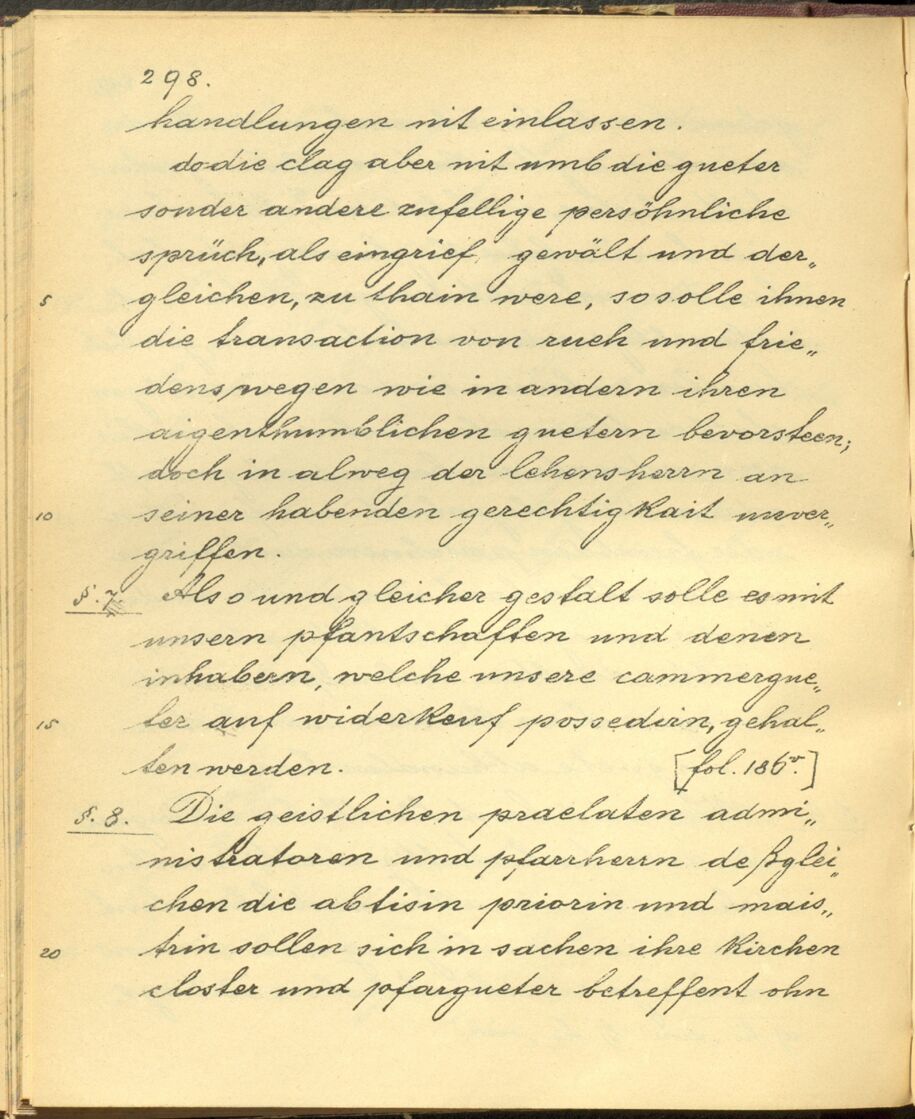 298.
handlungen nit einlassen.
do die clag aber nit umb die gueter
sonder andere zufellige persöhnliche
sprüch, als eingrief, gewält und der„
5 gleichen, zu thain were, so solle ihnen
die transaction von rueh und frie„
denswegen wie in andern ihren
aigenthumblichen guetern bevorsteen;
doch in alweg der lehensherrn an
10 seiner habenden gerechtigkait unver„
griffen.
§. 7. Also und gleicher gestalt solle es mit
unsern pfantschafften und denen
inhabern, welche unsere cammergue„
15 ter auf widerkeuf possedirn, gehal„
ten werden. [fol. 186v.]
§. 8. Die geistlichen praelaten admi„
nistratoren und pfarrherrn deßglei„
chen die abtisin priorin und mais„
20 trin sollen sich in sachen ihre kirchen
closter und pfargueter betreffent ohn